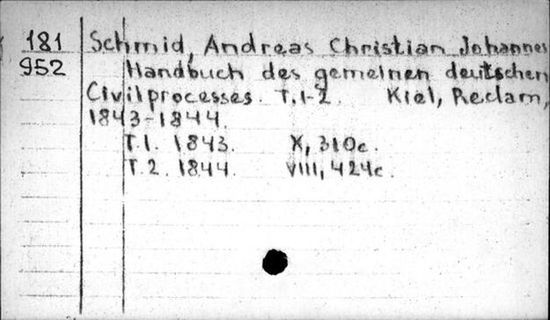 181 Schmid, Andreas Christian Johannes
952 Handbuch des gemeinen deutschen
Civilprocesses. T.1-2. Kiel, Reclam,
1843-1844.
T.1. 1843. X, 310c.
T.2. 1844. VIII, 424c.